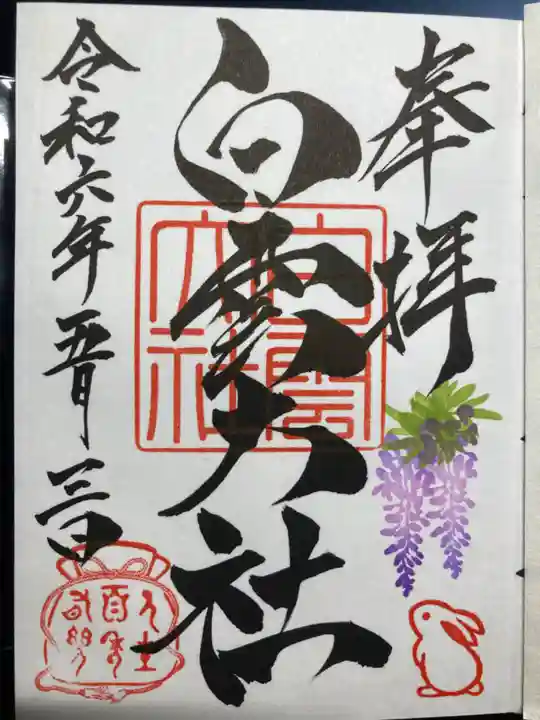 奉拝
白雲大社
令和六年五月三日